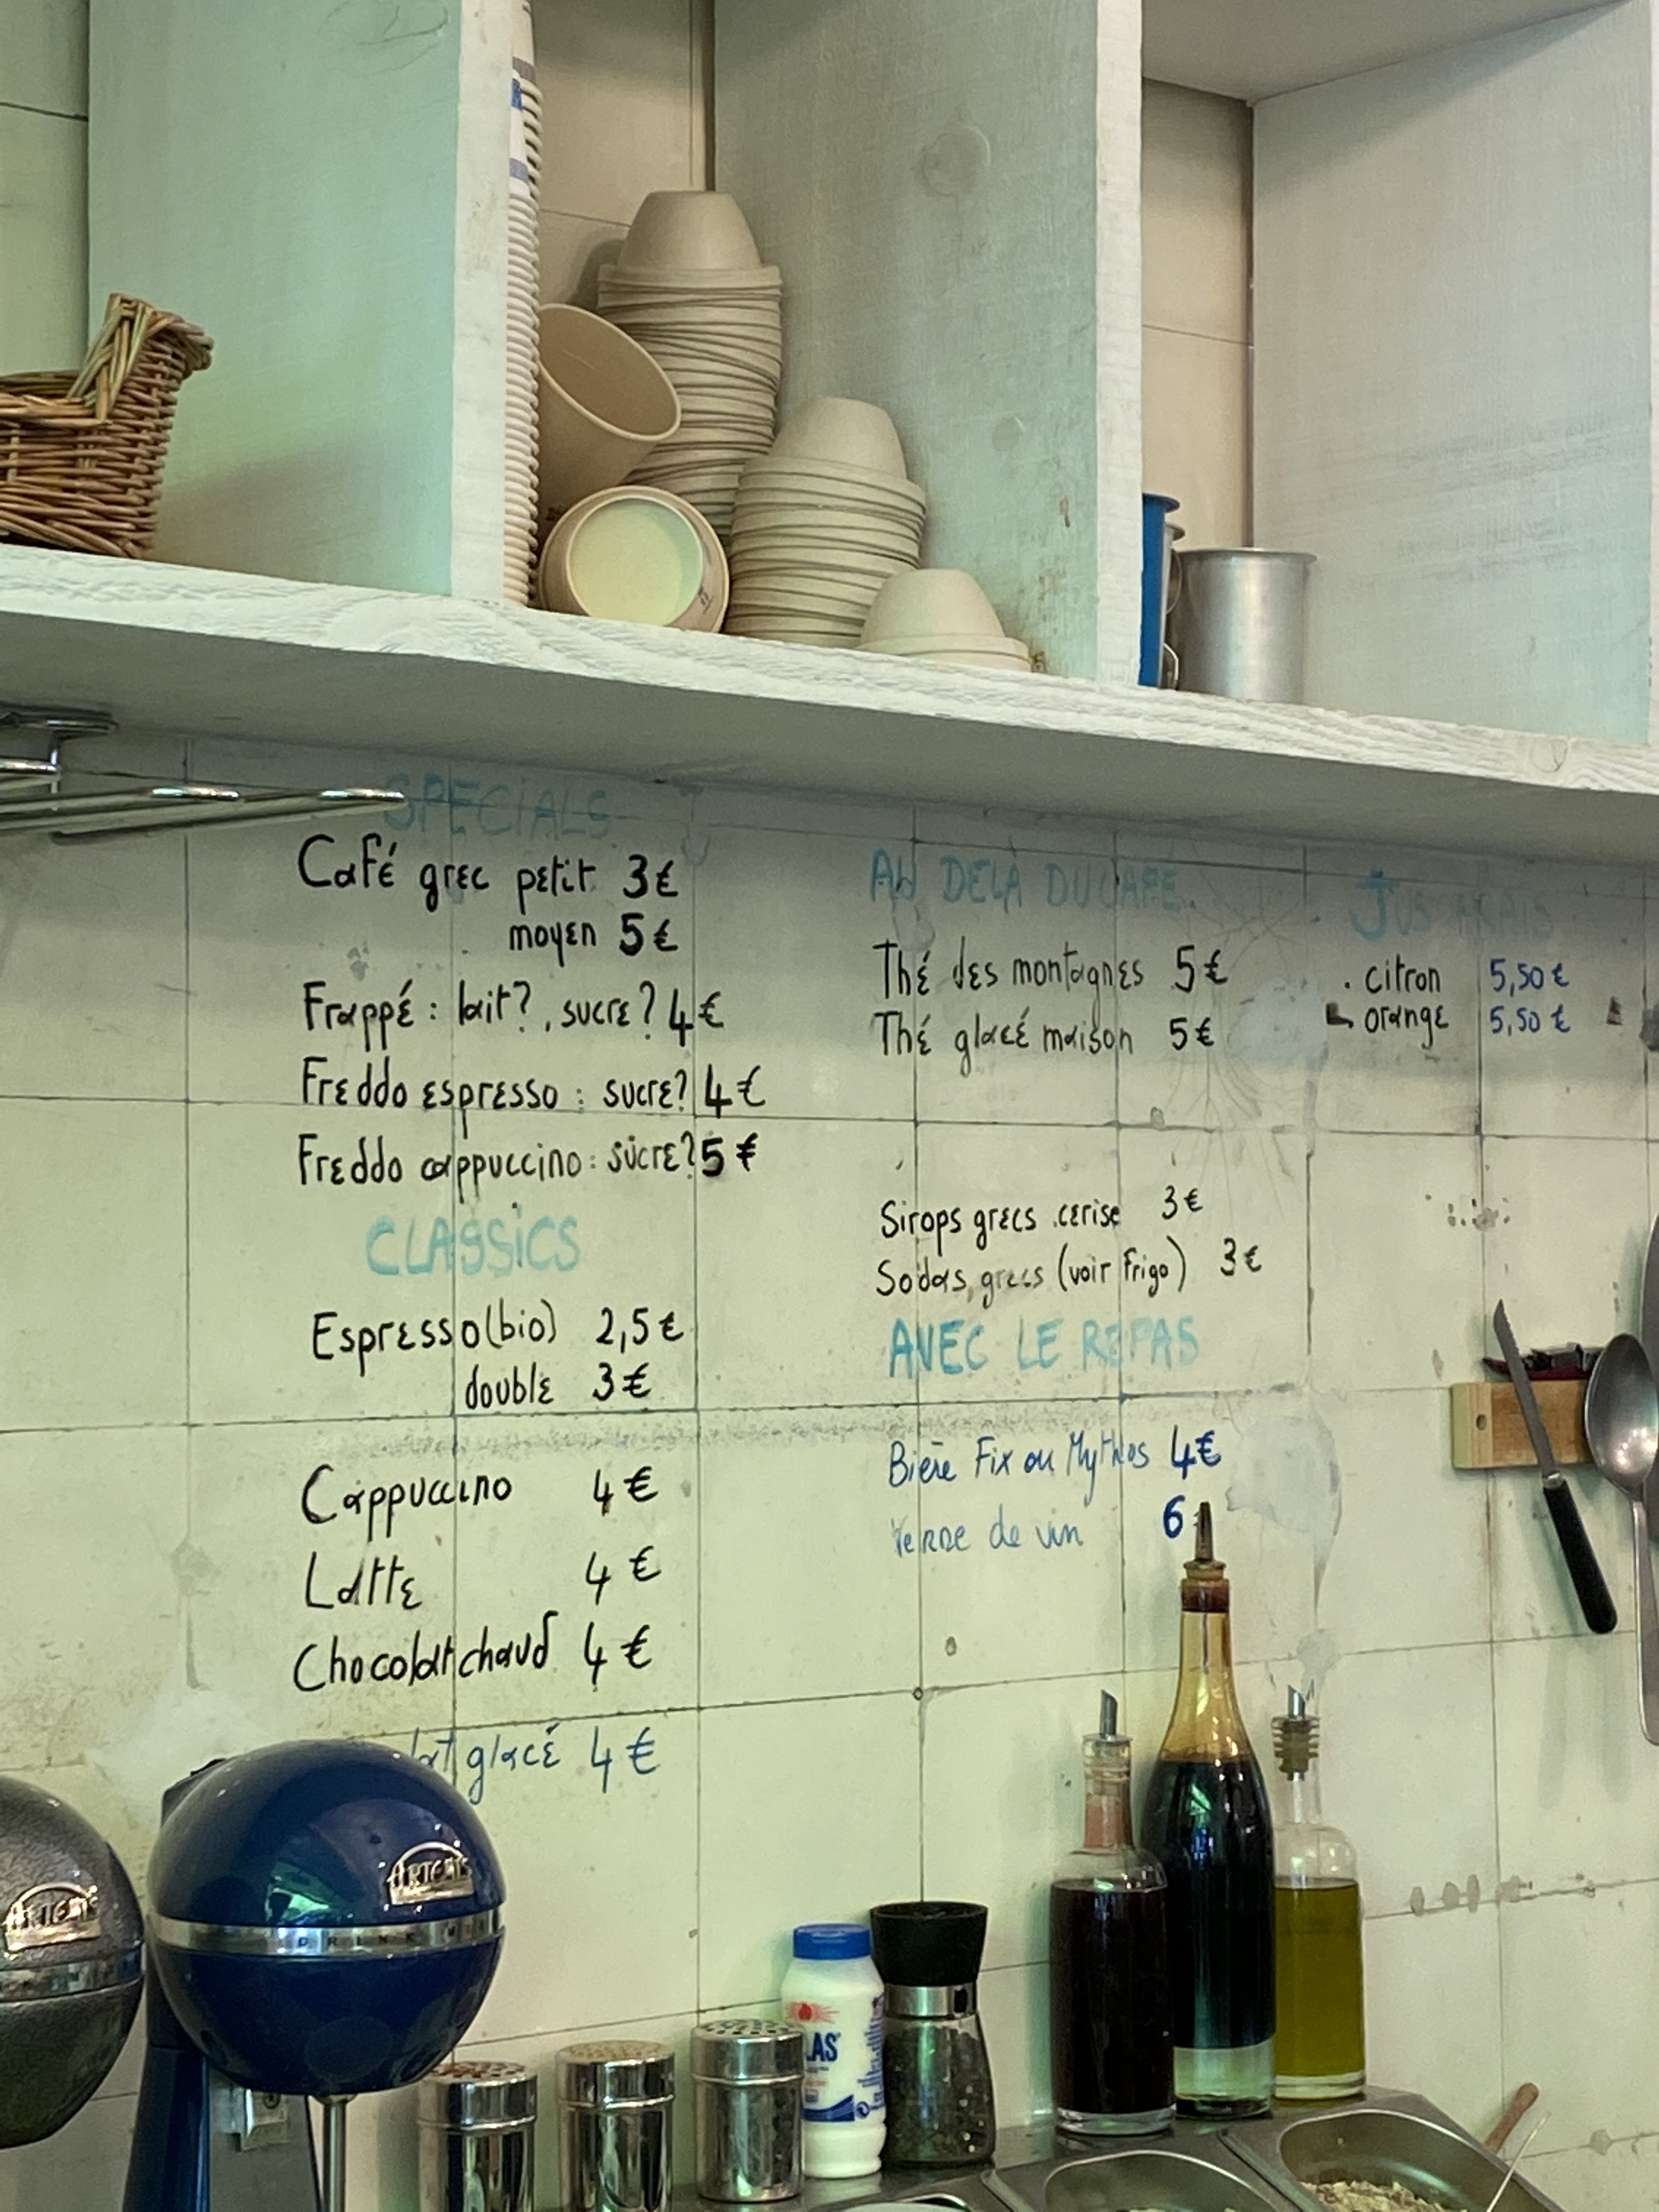 SPECIALS
Café grec petit 3€
moyen 5€
Frappé : lait?, sucre? 4€
Freddo espresso : sucre? 4€
Freddo cappuccino : sucre? 5€
CLASSICS
Espresso (bio) 2,5€
double 3€
Cappuccino 4€
Latte 4€
Chocolat chaud 4€
glacé 4€
AU DELÀ DU CAFÉ
Thé des montagnes 5€
Thé glacé maison 5€
Sirops grecs .cerise 3€
Sodas grecs (voir frigo) 3€
AVEC LE REPAS
Bière Fix ou Mythos 4€
Verre de vin 6
JUS FRAIS
. citron 5,50€
orange 5,50€
ARTEMIS
ARTEMIS
DRINK